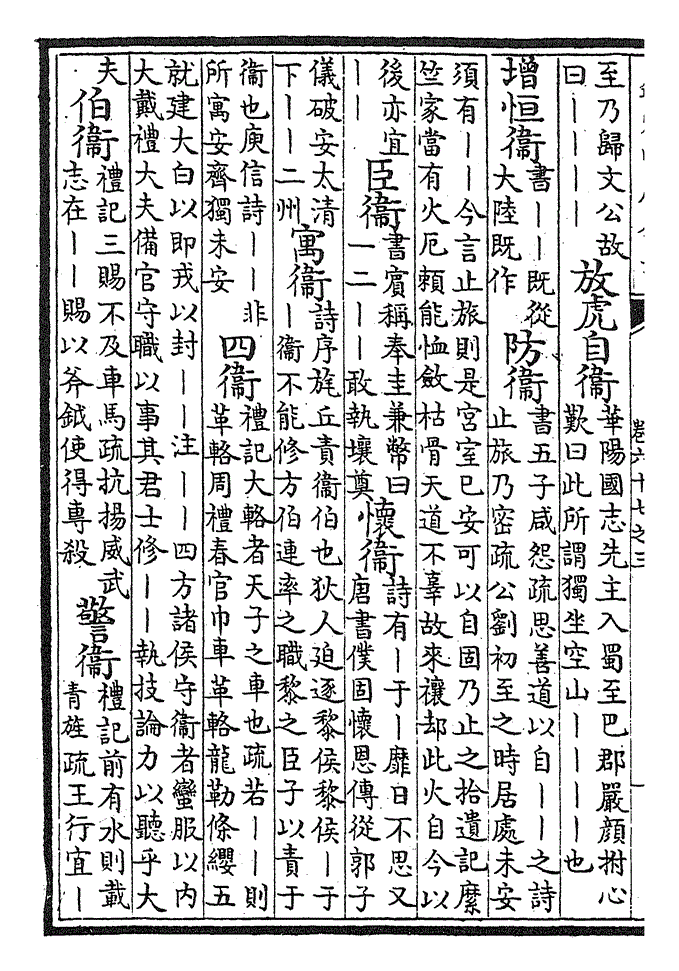 至乃歸文公故
曰－－－－
放虎自衞
華陽國志先主入蜀至巴郡嚴顔拊心
歎曰此所謂獨坐空山－－－－也
增恒衞
書－－既從
大陸既作
防衞
書五子咸怨疏思善道以自－－之詩
止旅乃密疏公劉初至之時居處未安
須有－－今言止旅則是宮室已安可以自固乃止之拾遺記縻
竺家當有火厄賴能恤斂枯骨天道不辜故來禳却此火自今以
後亦宜
－－
臣衞
書賓稱奉圭兼幣曰
一二－－敢執壤奠
懷衞
詩有－于－靡日不思又
唐書僕固懷恩傳從郭子
儀破安太清
下－－二州
寓衞
詩序旄丘責衞伯也狄人廹逐黎侯黎侯－于
－衞不能修方伯連率之職黎之臣子以責于
衞也庾信詩－－非
所寓安齊獨未安
四衞
禮記大輅者天子之車也疏若－－則
革輅周禮春官巾車革輅龍勒條纓五
就建大白以即戎以封－－注－－四方諸侯守衞者蠻服以内
大戴禮大夫備官守職以事其君士修－－執技論力以聽乎大
夫
伯衞
禮記三賜不及車馬疏抗揚威武
志在－－賜以斧鉞使得專殺
警衞
禮記前有水則載
青旌疏王行宜－
卷六十七之三